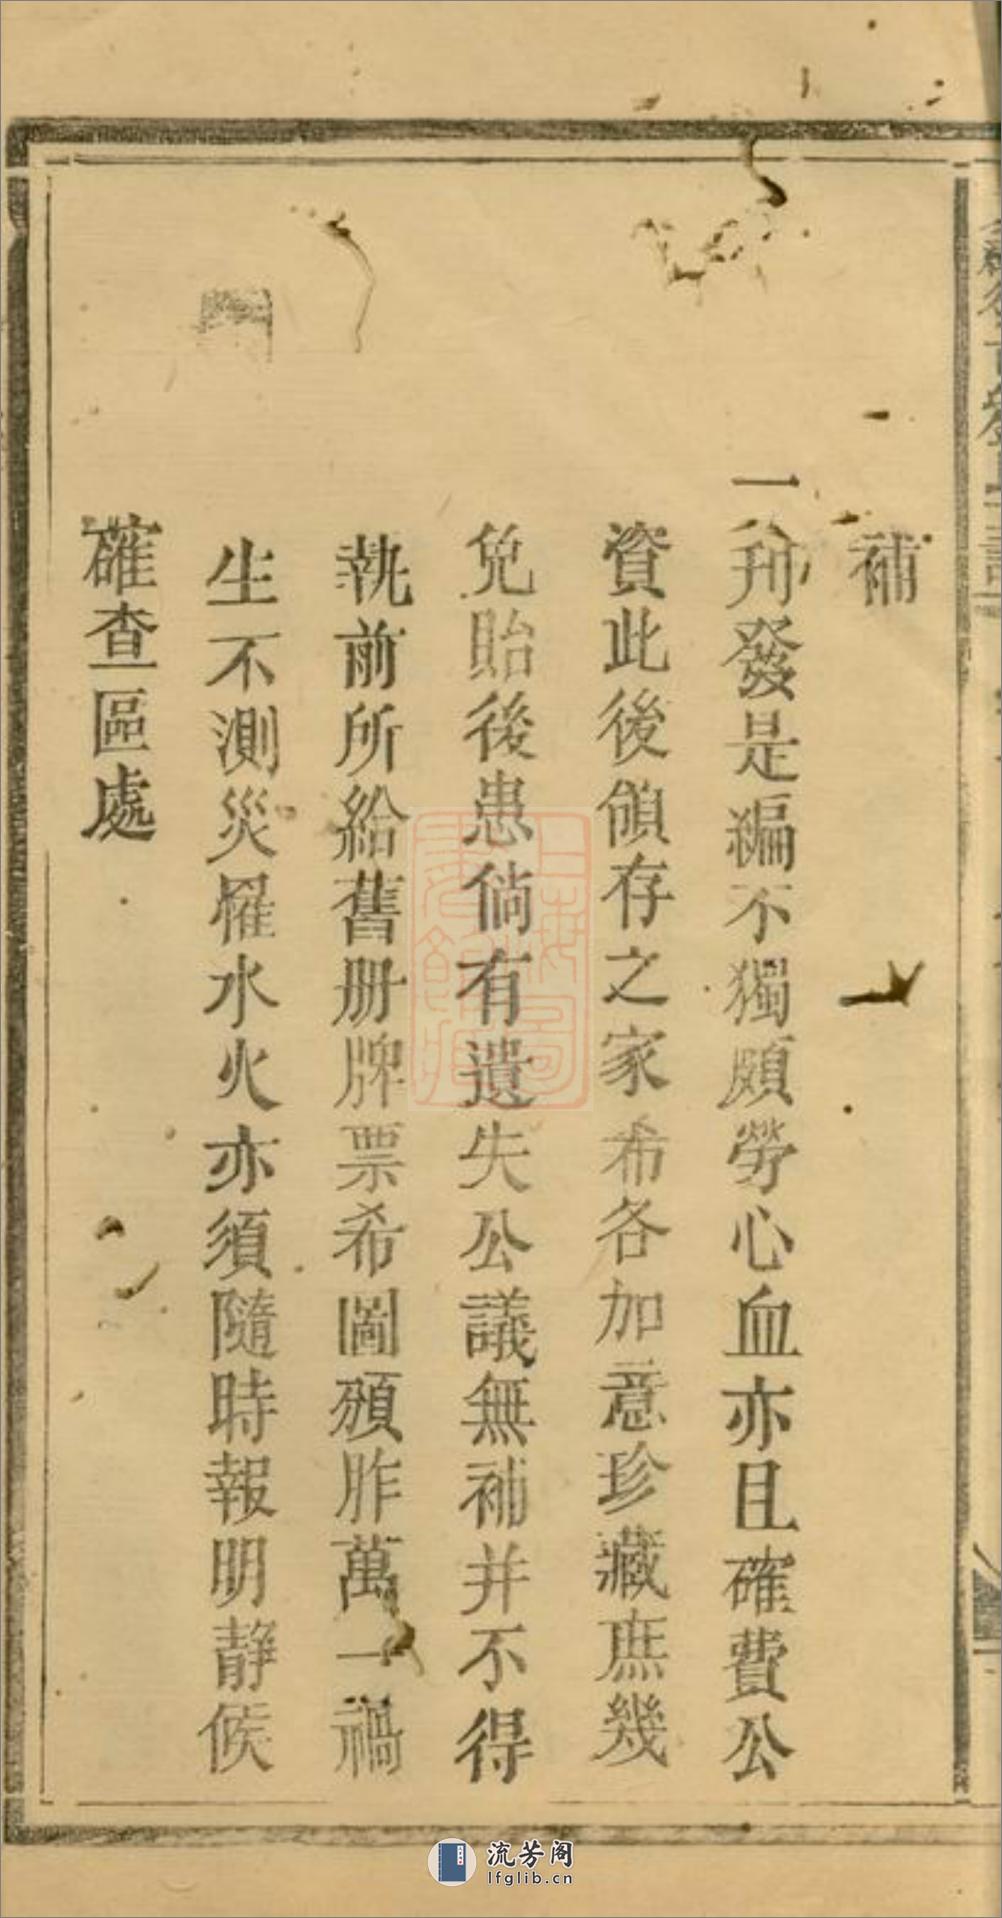 補
一刋發是編不獨頗勞心血亦且確費公
資此後領存之家希各加意珍藏庶幾
免貽後患倘有遺失公議無補并不得
執前所給舊册牌票希圖頒胙萬一禍
生不測災罹水火亦須隨時報明静候
確查區處
流芳阁
lfglib.cn